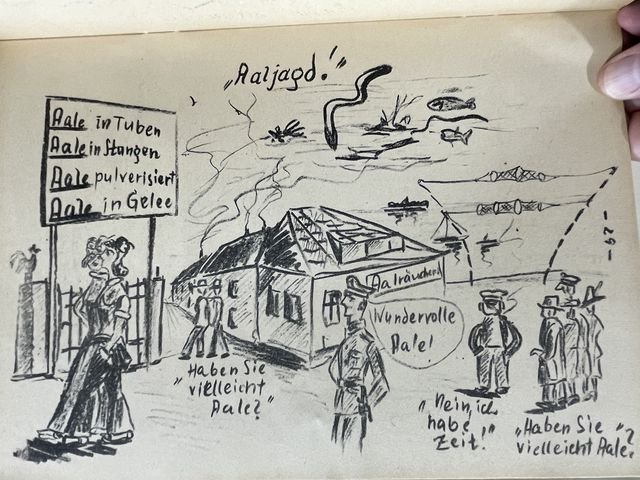 „Aaljagd!"
Aale in Tuben
Aale in Stangen
Aale pulverisiert
Aale in Gelee
Aalräucherei
Wundervolle
Aale!
„Haben Sie
vielleicht
Aale?"
„Nein, ich
habe
Zeit!"
„Haben Sie
vielleicht Aale?"
- 67 -